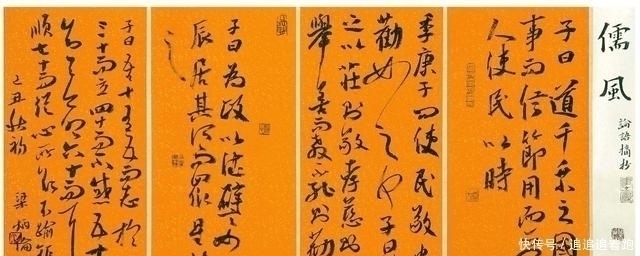 儒風
論語摘抄
子曰道千乘之國
事而信節用而
人使民以時
季康子問使民敬忠
勸如之何子曰
之以莊則敬孝慈則
舉善而教不能則勸
子曰為政以德譬如
辰居其所而眾星
之
子曰吾十有五而志於
三十而立四十而不惑五十
知天命六十而耳
順七十而從心所欲不踰矩
乙丑秋初
快传号/追追追着跑